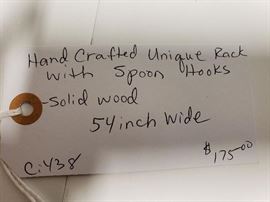 Hand Crafted Unique Rack
with Spoon Hooks
-Solid wood
54 inch Wide
C:438
$175.00